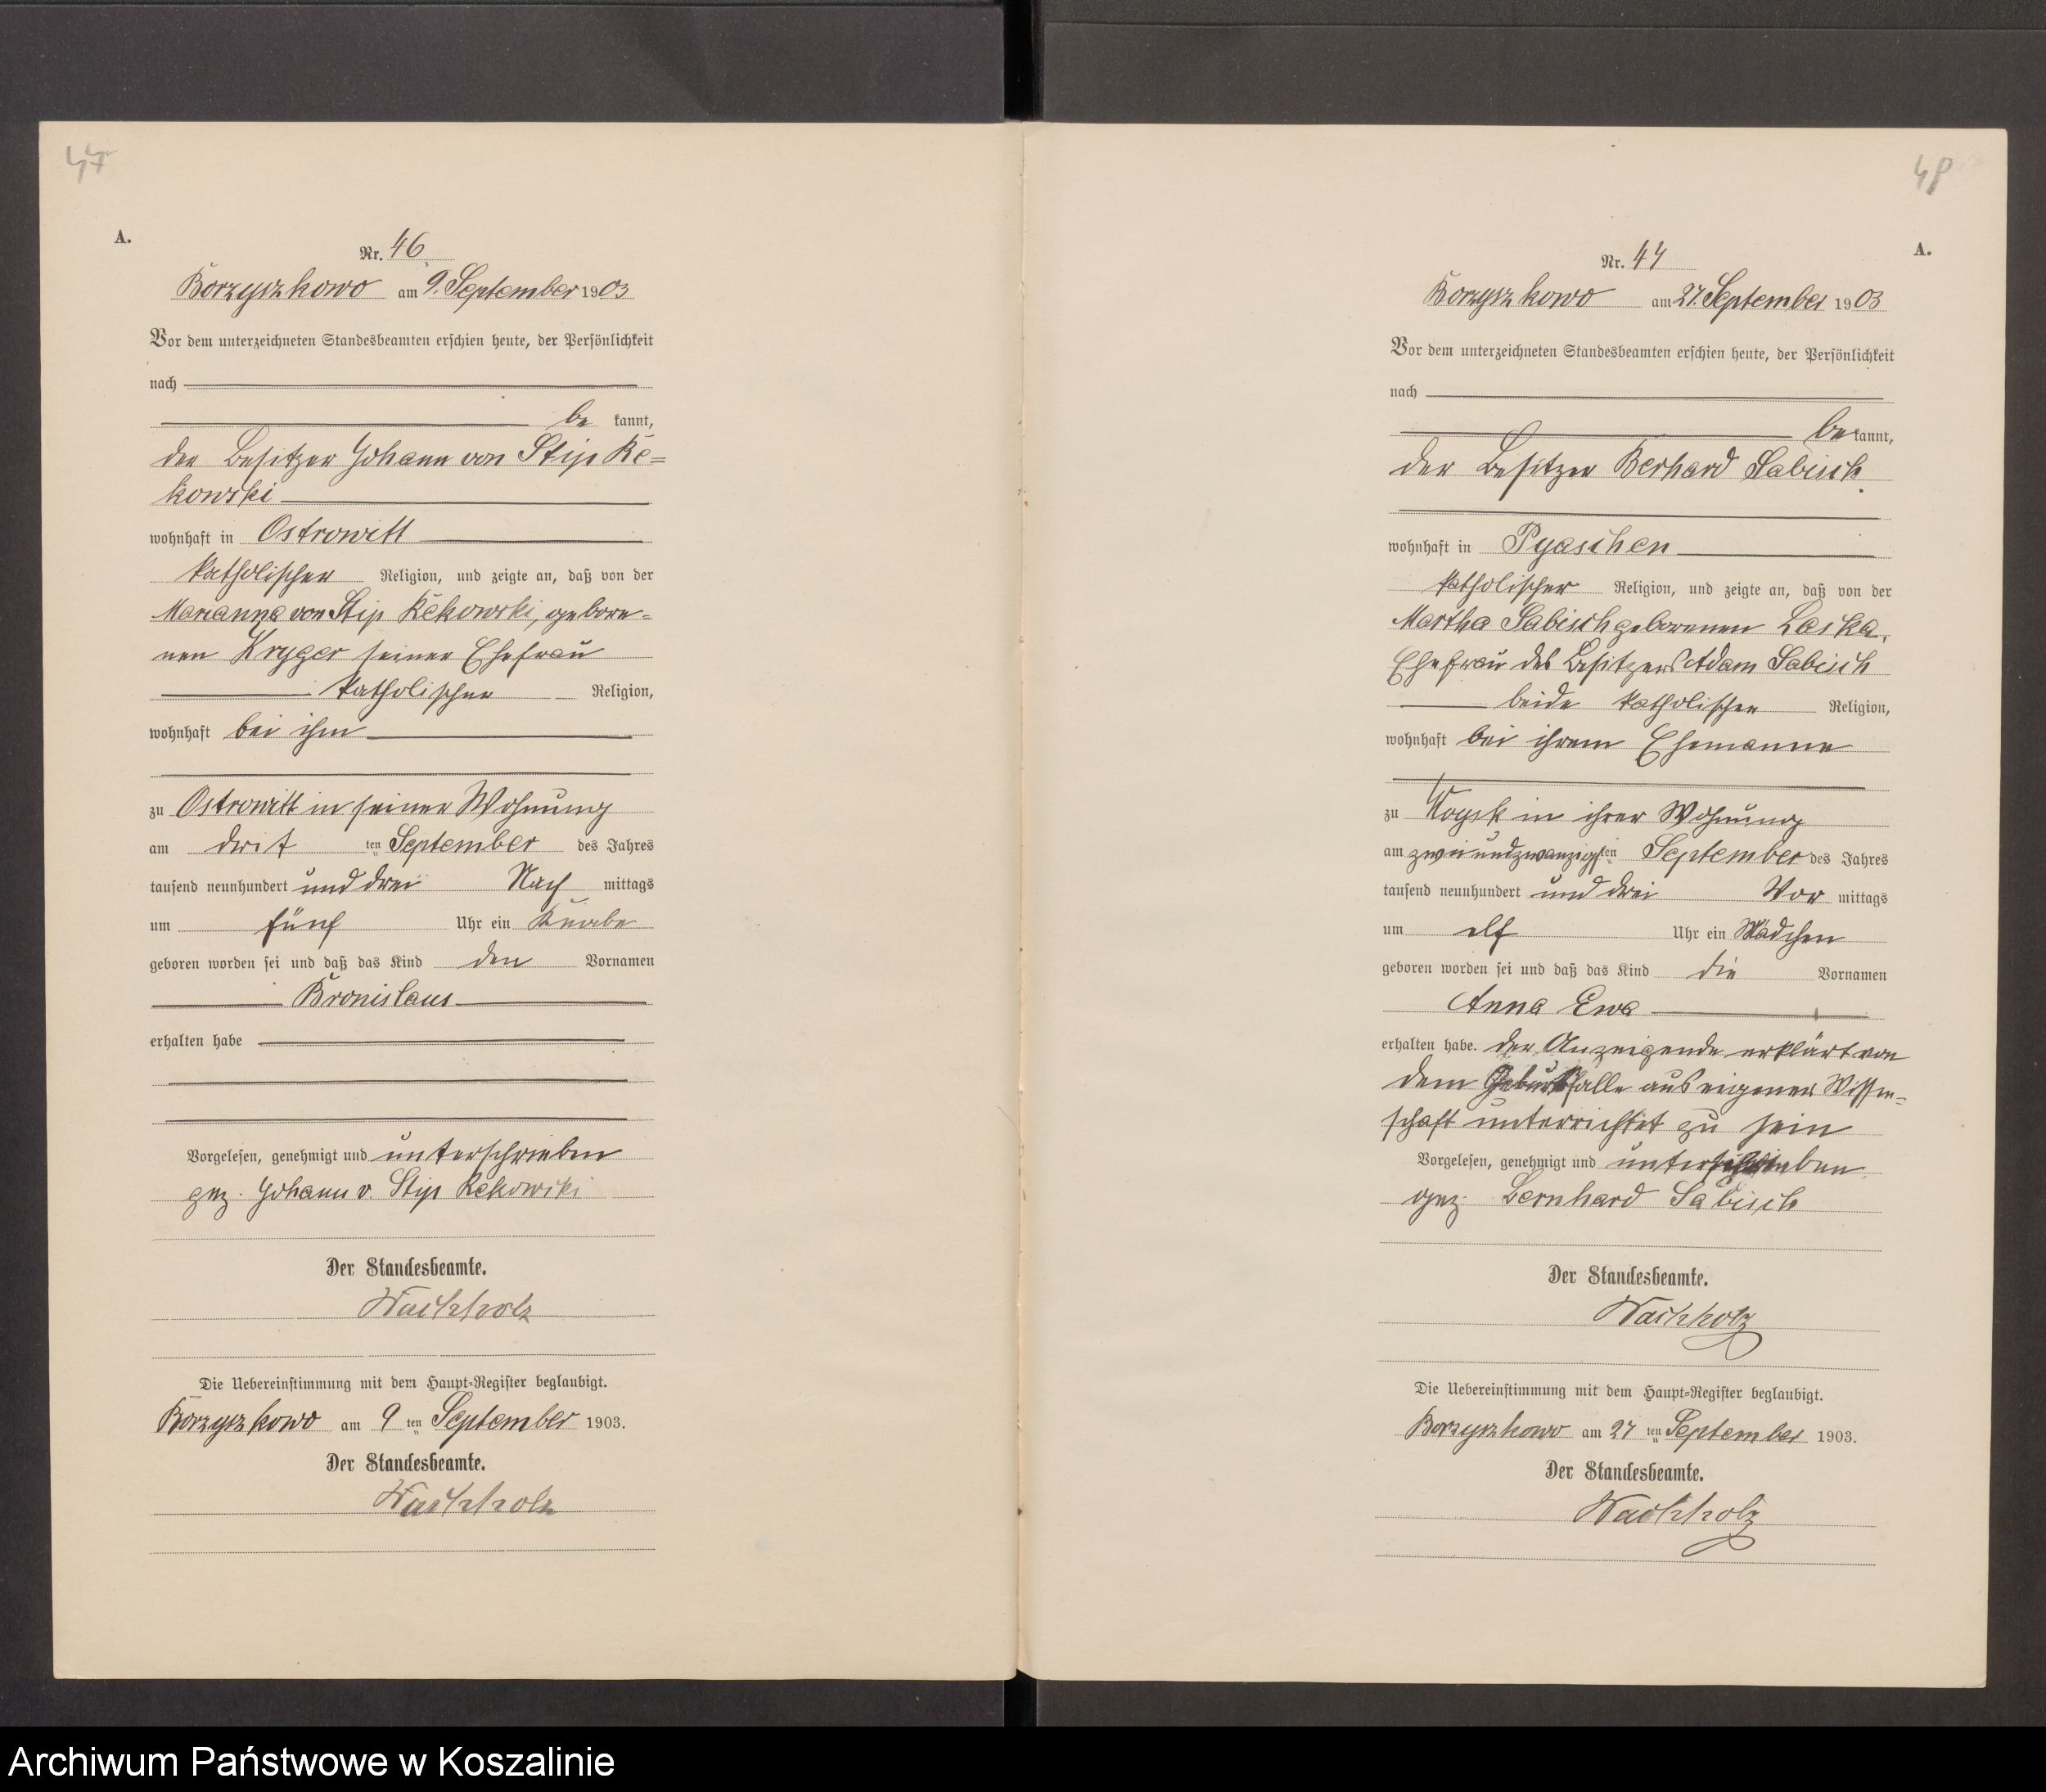 47
A.
Nr. 46
Borzyszkowo am 9. September 1903
Vor dem unterzeichneten Standesbeamten erschien heute, der Persönlichkeit
nach
be kannt,
der Besitzer Johann von Stip Ke=
kowski
wohnhaft in Ostrowitt
katholischer Religion, und zeigte an, daß von der
Marianna von Stip Kekowski, gebore-
nen Kryger seiner Ehefrau
katholischer Religion,
wohnhaft bei ihm
zu Ostrowitt in seiner Wohnung
am drit ten September des Jahres
tausend neunhundert und drei Nach mittags
um fünf Uhr ein Knabe
geboren worden sei und daß das Kind den Vornamen
Bronislaus
erhalten habe
Vorgelesen, genehmigt und unterschrieben
gez. Johann v. Stip Kekowski
Der Standesbeamte.
Wachholz
Die Uebereinstimmung mit dem Haupt-Register beglaubigt.
Borzyszkowo am 9 ten September 1903.
Der Standesbeamte.
Wachholz
48
A.
Nr. 47
Borzyszkowo am 27. September 1903
Vor dem unterzeichneten Standesbeamten erschien heute, der Persönlichkeit
nach
be kannt,
der Besitzer Berhard Sabisch
wohnhaft in Pyaschen
katholischer Religion, und zeigte an, daß von der
Martha Sabisch geborenen Laska,
Ehefrau des Besitzers Adam Sabisch
beide katholischer Religion,
wohnhaft bei ihrem Ehemanne
zu in ihrer Wohnung
am zweiundzwanzigsten September des Jahres
tausend neunhundert und drei Vor mittags
um elf Uhr ein Mädchen
geboren worden sei und daß das Kind die Vornamen
Anna Ewa
erhalten habe. der Anzeigende erklärt von
dem Geburtsfalle aus eigener Wissen=
schaft unterrichtet zu sein
Vorgelesen, genehmigt und unterschrieben
gez. Bernhard Sabisch
Der Standesbeamte.
Wachholz
Die Uebereinstimmung mit dem Haupt-Register beglaubigt.
Borzyszkowo am 27 ten September 1903.
Der Standesbeamte.
Wachholz
Archiwum Państwowe w Koszalinie